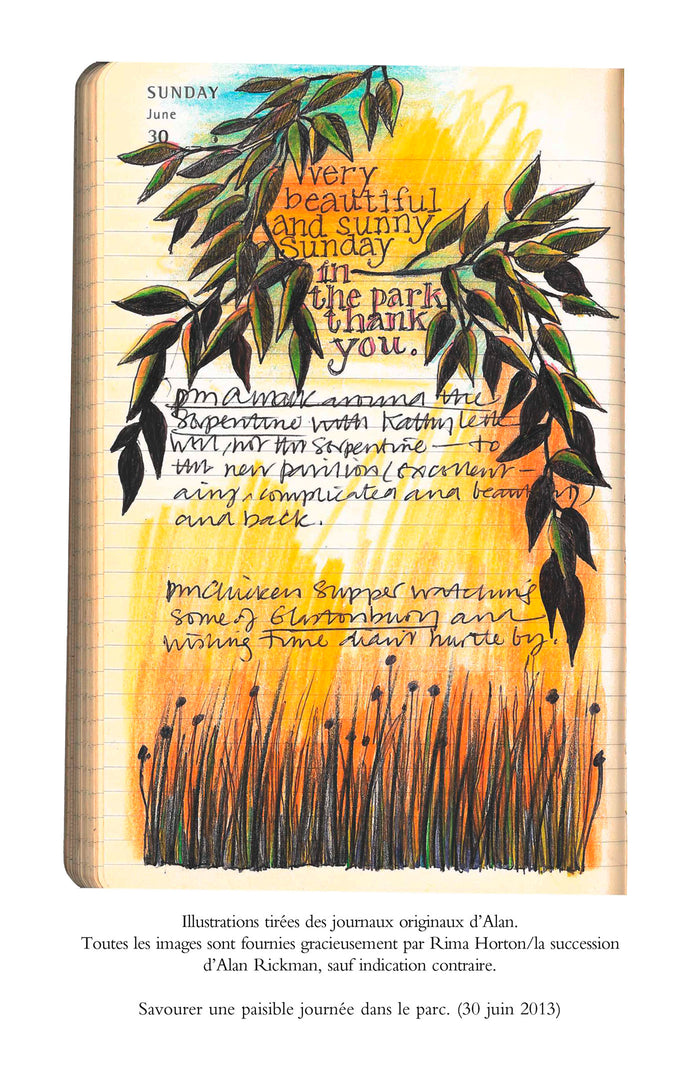 SUNDAY
June
30
very
beautiful
and sunny
Sunday
in
the park
thank
you.
pm A walk around the
Serpentine with Kathy Lette
Well, not the Serpentine – to
the new pavilion (excellent –
airy, complicated and beautiful)
and back.
pm Chicken supper watching
some of Glastonbury and
wishing Time didn't hurtle by.
Illustrations tirées des journaux originaux d'Alan.
Toutes les images sont fournies gracieusement par Rima Horton/la succession
d'Alan Rickman, sauf indication contraire.
Savourer une paisible journée dans le parc. (30 juin 2013)